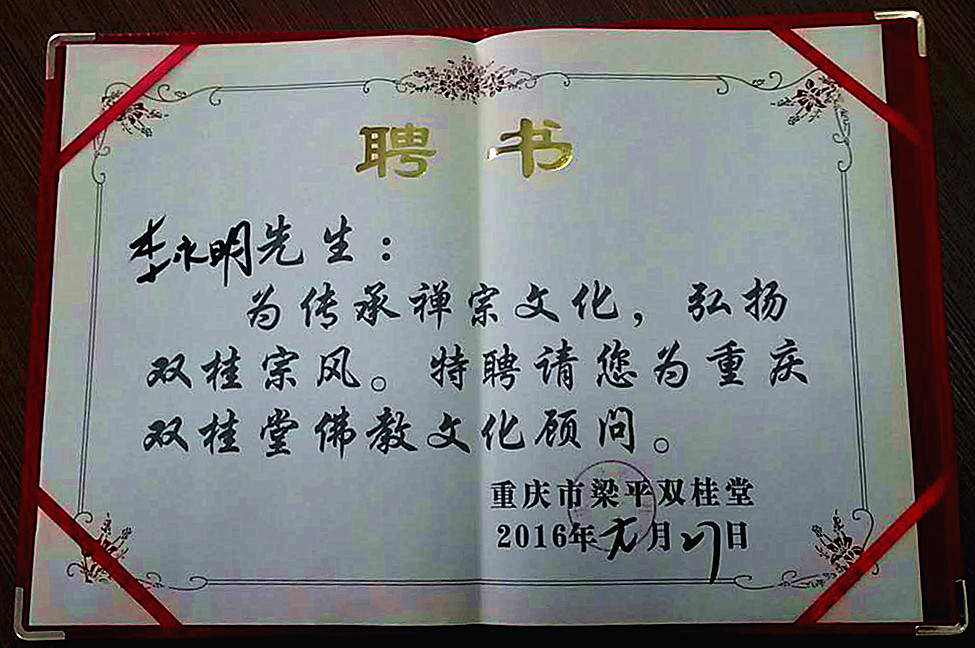 聘书
李永明先生：
为传承禅宗文化，弘扬
双桂宗风。特聘请您为重庆
双桂堂佛教文化顾问。
重庆市梁平双桂堂
2016年元月27日